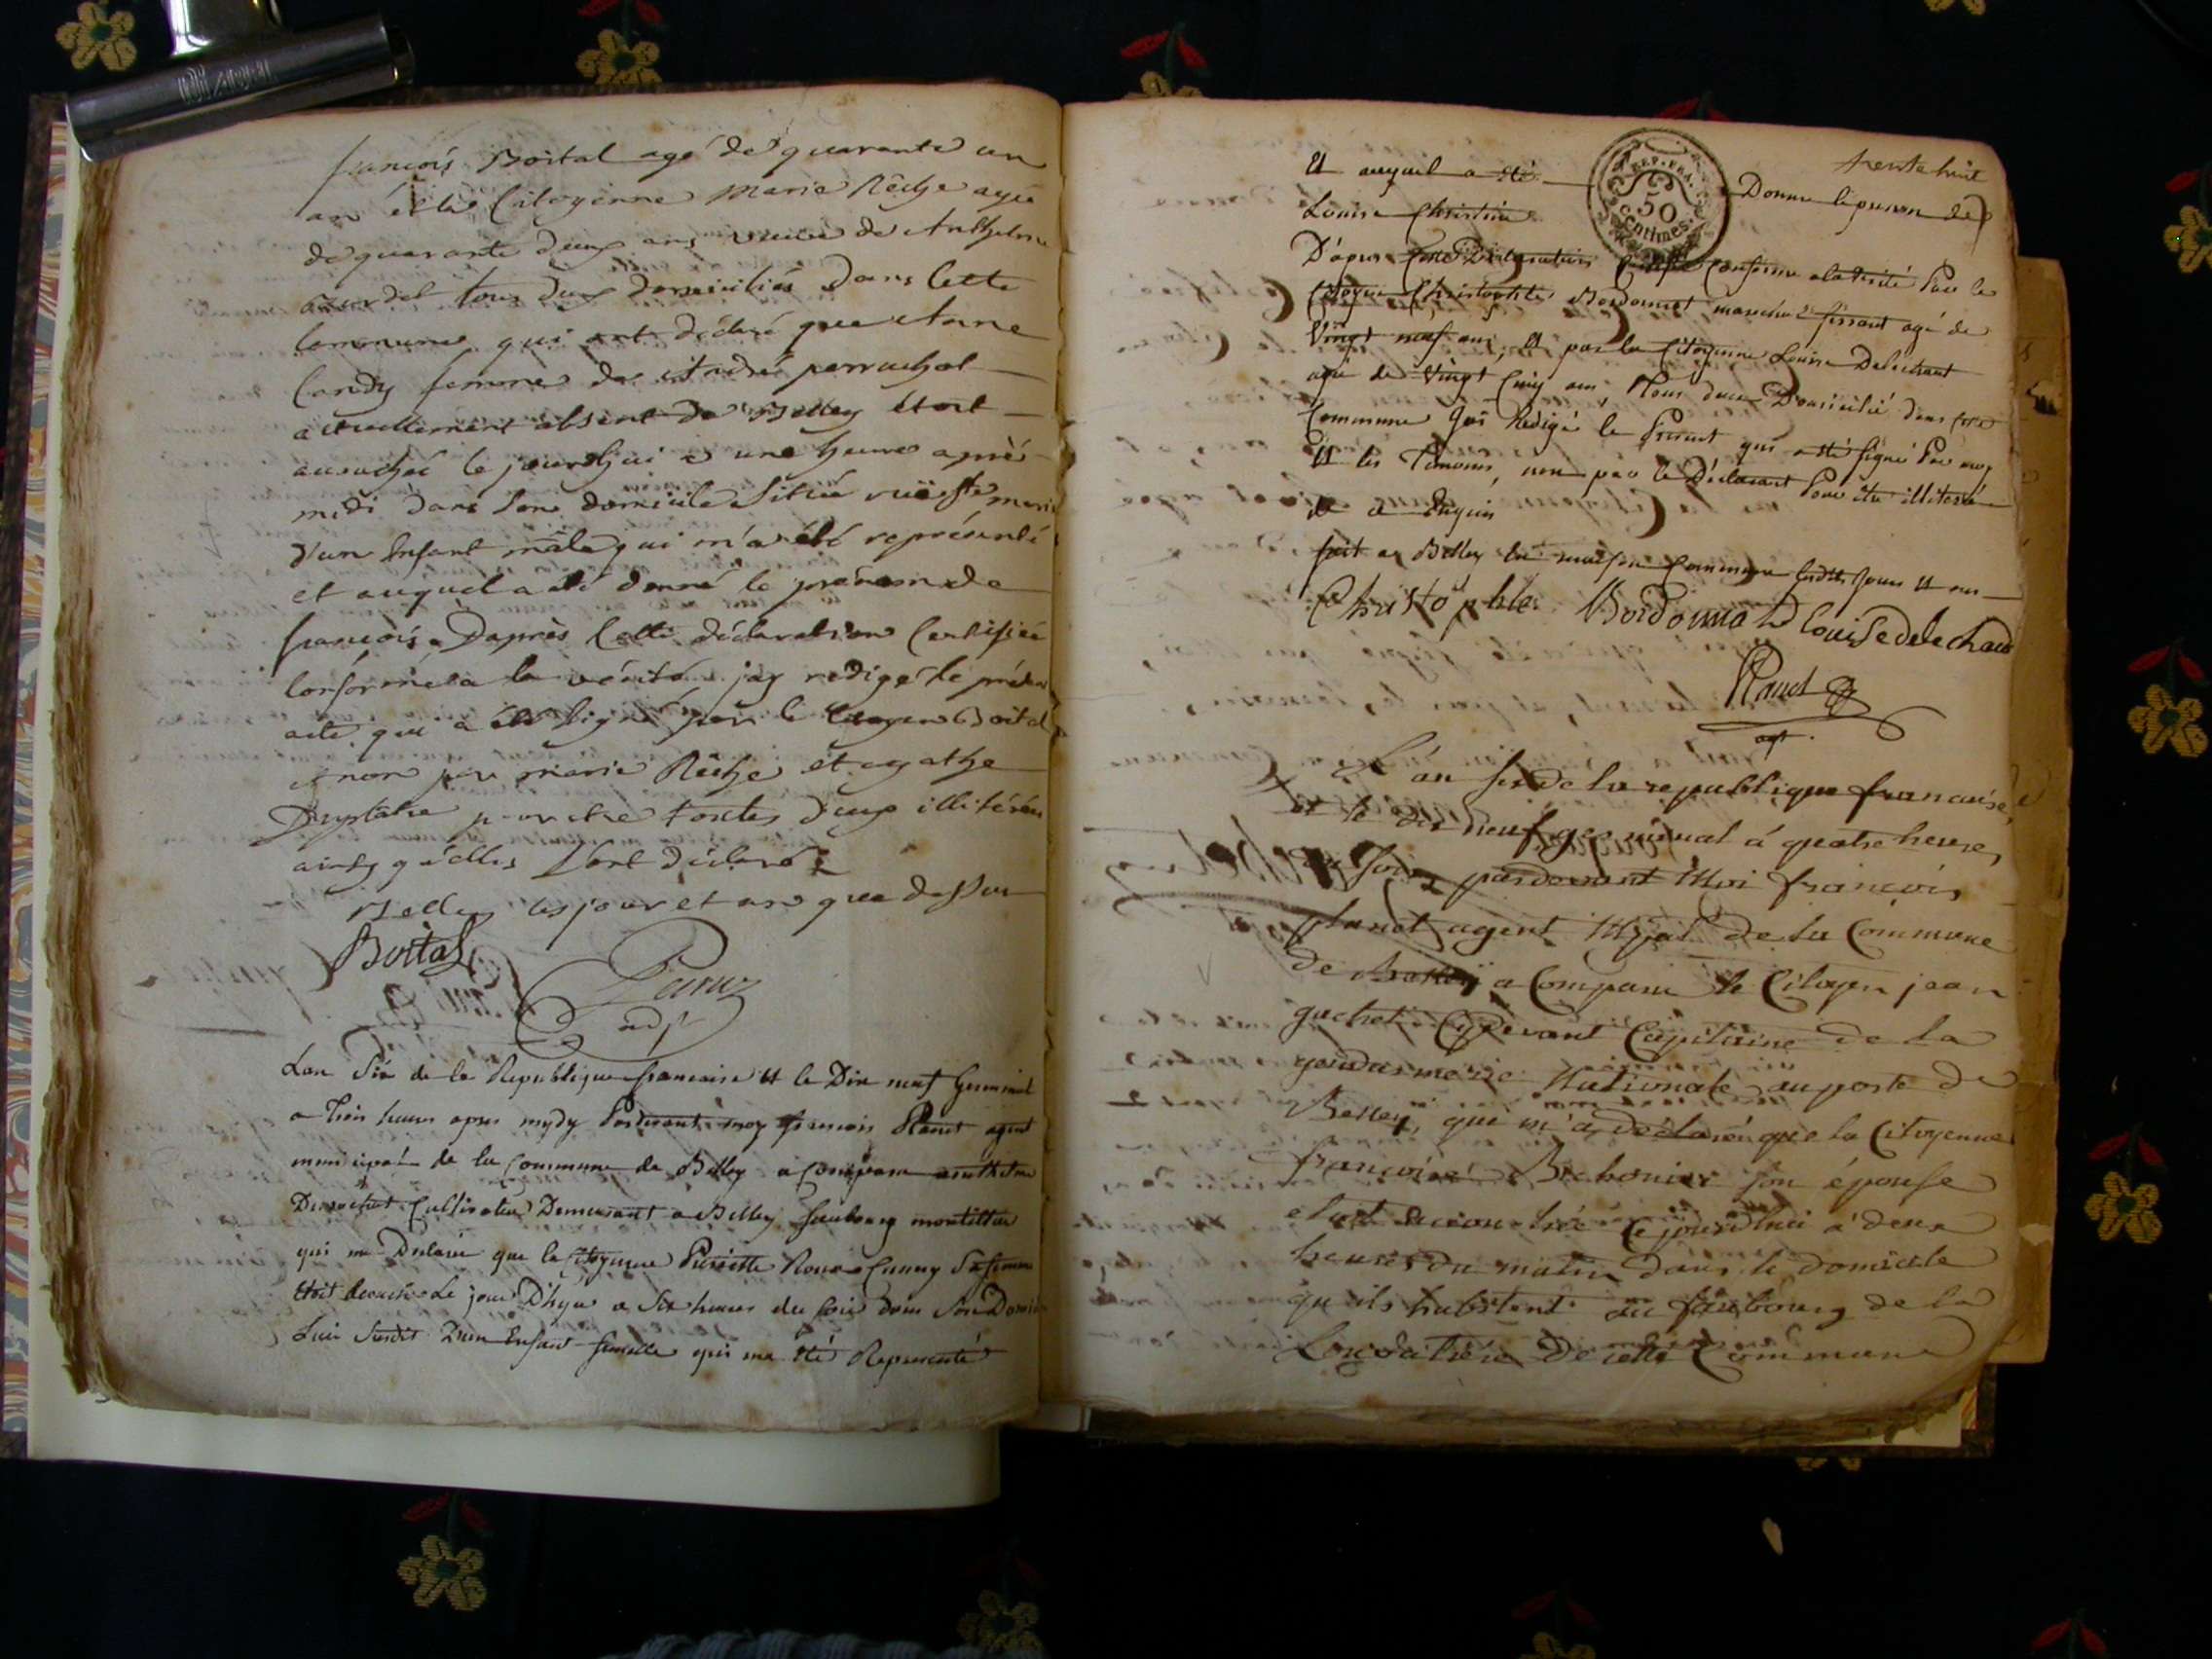 françois Boital agé de quarante un
an et la Citoyenne Marie Rêche agée
de quarante deux ans veuve de Anthelme
tous deux domiciliés dans Cette
Commune qui ont déclaré que Anne
femme de André perrachol
actuellement absent de Belley étoit
accouchée le jourdhui a une heure après
midi dans son domicile Situé rüe Ste marie
d'un Enfant mâle qui m'a été représenté
et auquel a été donné le prénom de
françois Daprès Cette déclaration Certifiée
Conforme a la vérité jay redigé le présent
acte qui a été Signé par le Citoyen Boital
et non par marie Rêche et agathe
pour etre toutes deux illitérées
ainsy qu'elles L'ont déclaré
Belley les jour et an que dessus
Boital
adjt
Lan Six de la Republique francaise et le Dix neuf Germinal
a Trois heures apres mydy Pardevant moy francois Planet agent
municipal de la Commune de Belley a Comparu anthelme
Durochat Cultivateur Demeurant a Belley faubourg
qui ma Declaré que la Citoyenne Pierrette Sa femme
étoit accouchée Le jour D'hyer a Six heures du soir dans Son Domi
Susdit D'un Enfant femelle qui ma été Representé
trente huit
REP. FRA.
50
Centimes
Et auquel a été Donné le prenom de
Louise Christine
D'apres Cette Declaration Conforme a la Verité Par le
Citoyen Christophle Bordomat marchand agé de
Vingt neuf ans, Et par la Citoyenne Louise Delechaut
agée de Vingt Cinq ans, Tous deux Domicilié dans Cette
Commune Jai Redigé le Present qui a été signé Par moy
Et les Temoins, non par le Déclarant Pour être illiteré
de ce Enquis
fait a Belley En maison Commune lesdits Jour et an
Christophle Bordomat Louise delechaud
Planet
agt
L'an six de la republique francaise,
et le dix neuf germinal á quatre heures
du soir, pardevant Moi françois
planet agent Mpal de la Commune
de Belley a Comparu le Citoyen jean
guchet Cydevant Capitaine de la
gendarmerie Nationale au poste de
Belley, qui m'a declaré que la Citoyenne
francoise Bichonier son épouse
etoit accouchée Cejourdhui à deux
heures du matin dans le domicile
qu'ils habitent au faubourg de la
De cette Commune